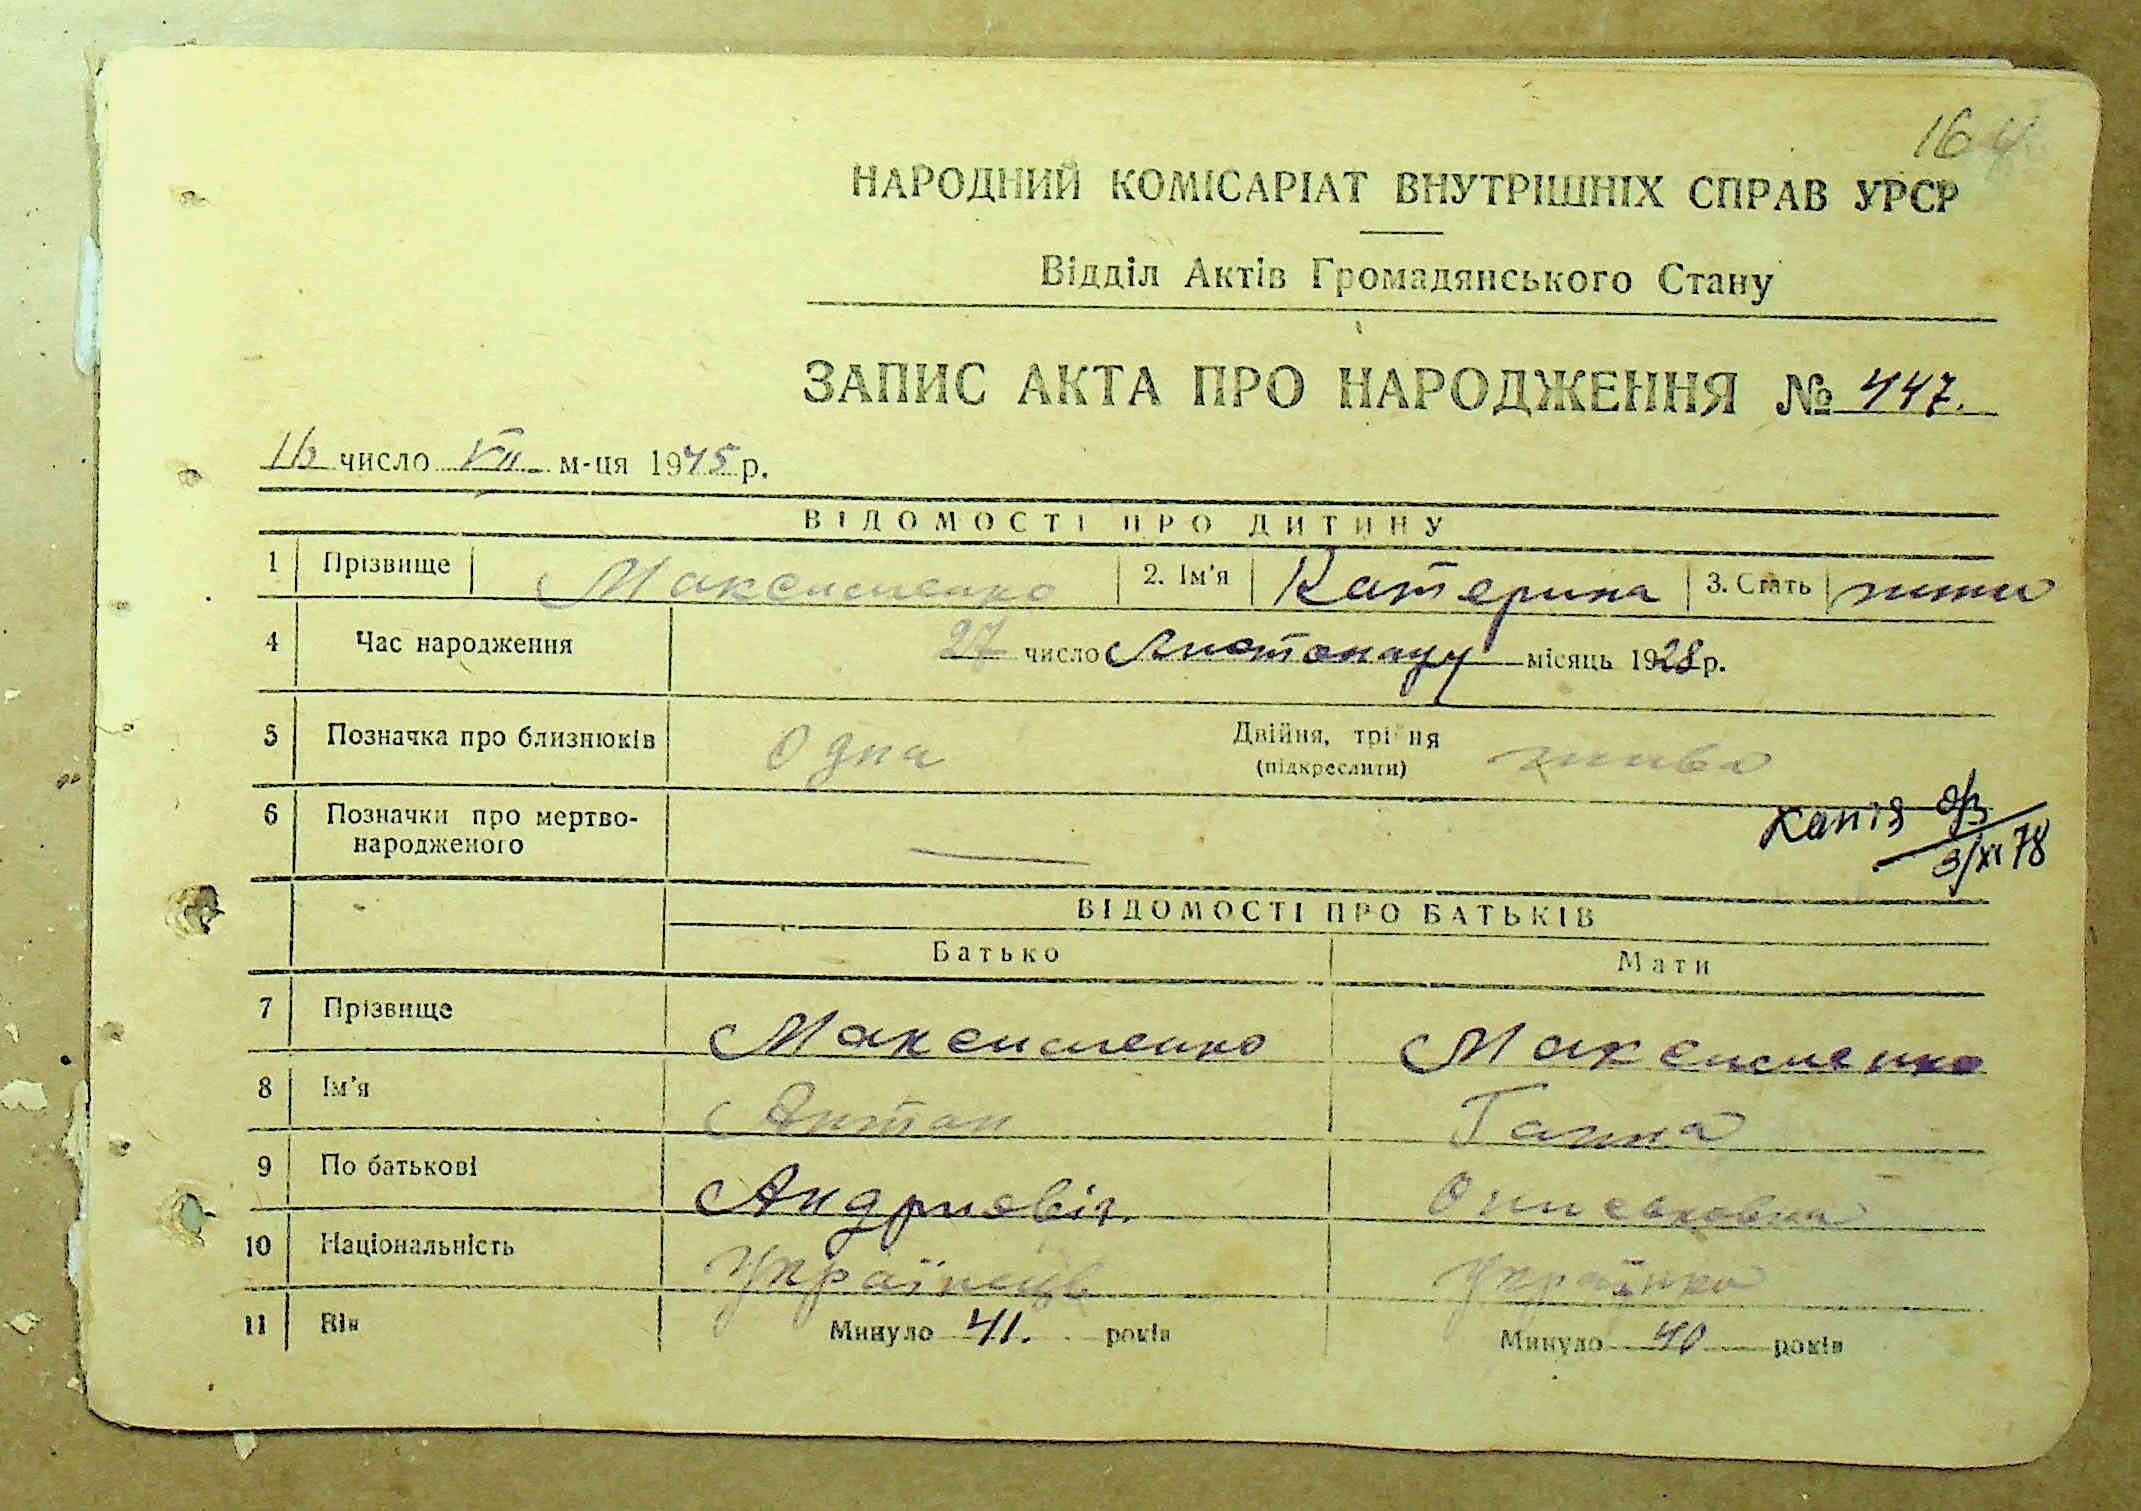 164
НАРОДНИЙ КОМІСАРІАТ ВНУТРІШНІХ СПРАВ УРСР
Відділ Актів Громадянського Стану
ЗАПИС АКТА ПРО НАРОДЖЕННЯ № 447.
число VII м-ця 1945 р.
ВІДОМОСТІ ПРО ДИТИНУ
1 Прізвище Максименко 2. Ім'я Катерина 3. Стать
4 Час народження 27 число Листопаду місяць 1928 р.
5 Позначка про близнюків Одна Двійня, трійня жива
(підкреслити)
6 Позначки про мертво-
народженого
копія
3/XI 78
ВІДОМОСТІ ПРО БАТЬКІВ
Батько Мати
7 Прізвище Максименко Максименко
8 Ім'я Антон Ганна
9 По батькові Андриєвіч. Ониськовна
10 Національність Українець Українка
11 Вік Минуло 41. років Минуло 40 років